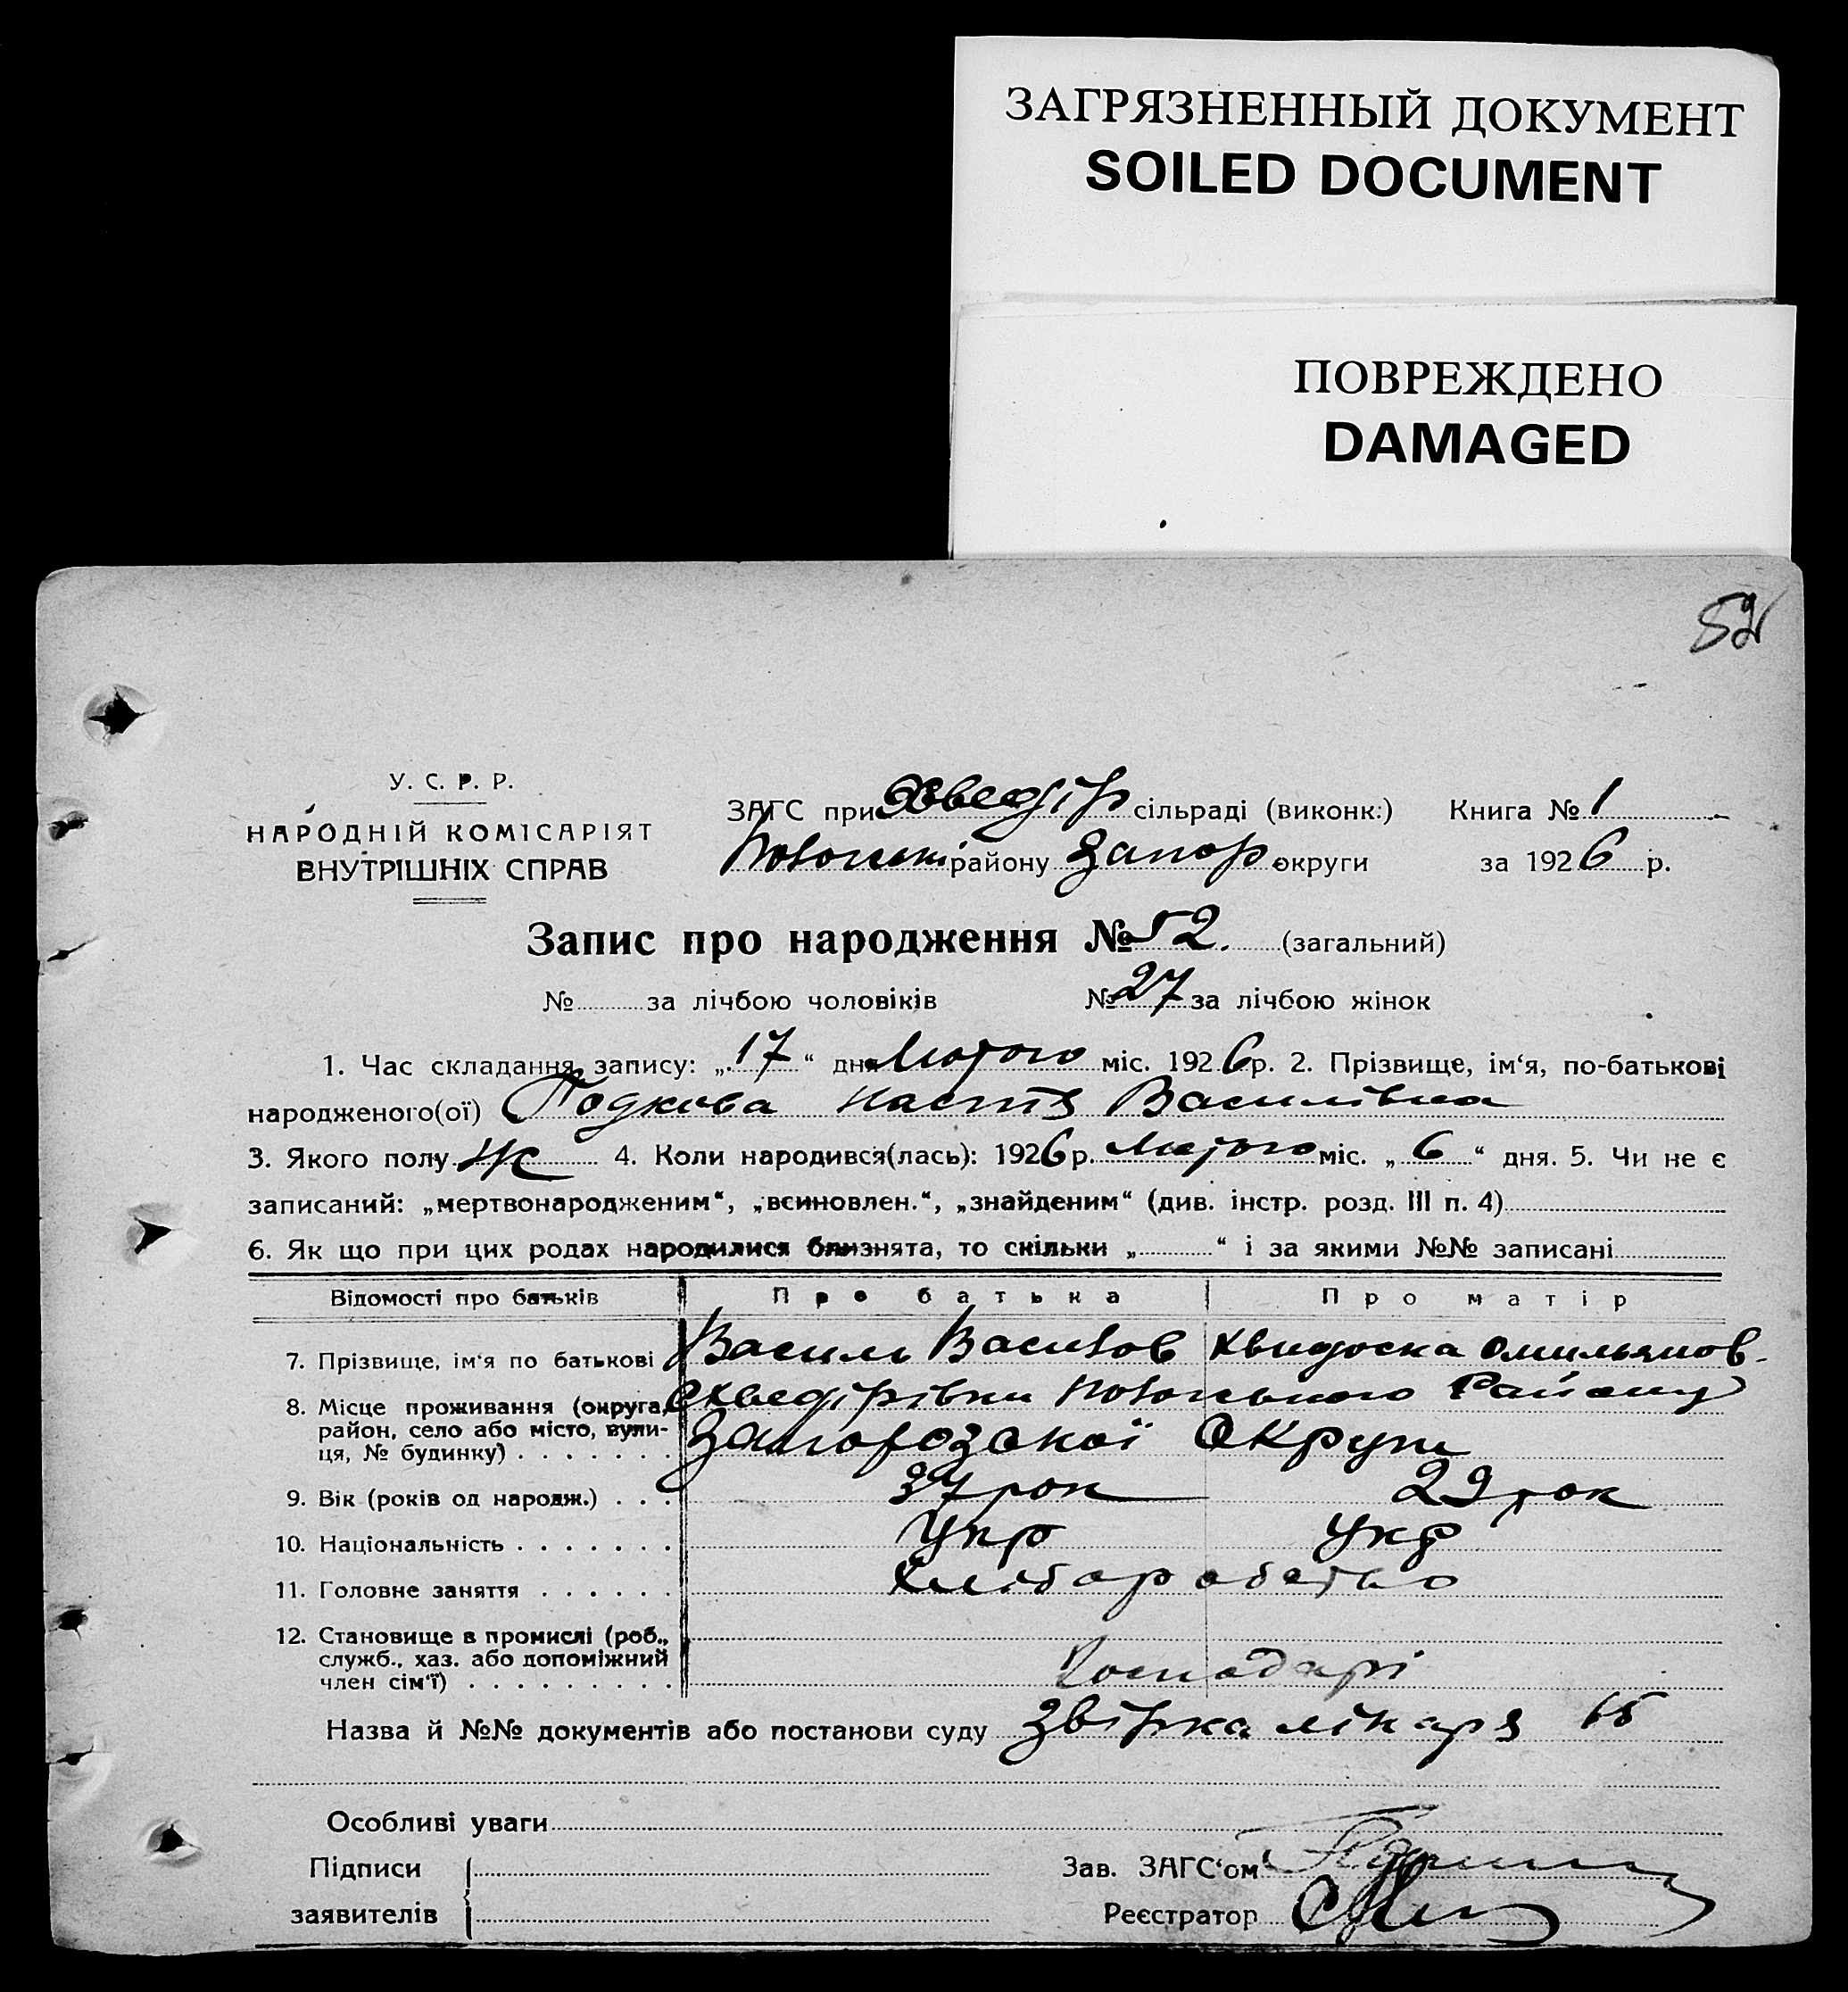 ЗАГРЯЗНЕННЫЙ ДОКУМЕНТ
SOILED DOCUMENT
ПОВРЕЖДЕНО
DAMAGED
52
У. С. Р. Р.
НАРОДНІЙ КОМІСАРІЯТ
ВНУТРІШНІХ СПРАВ
ЗАГС при Хведір сільраді (виконк.) Книга № 1
району Запор. округи за 1926 р.
Запис про народження № 52. (загальний)
№ за лічбою чоловіків № 27 за лічбою жінок
1. Час складання запису: „17“ дня Лютого міс. 1926 р. 2. Прізвище, ім‘я, по-батькові
народженого(ої) Подкова Настя Василівна
3. Якого полу Ж 4. Коли народився(лась): 1926 р. Лютого міс. „6“ дня. 5. Чи не є
записаний: „мертвонародженим“, „всиновлен.“, „знайденим“ (див. інстр. розд. III п. 4)
6. Як що при цих родах народилися близнята, то скільки „ “ і за якими №№ записані
Відомості про батьків Про батька Про матір
7. Прізвище, ім‘я по батькові Василь Хвидоска Омильянов.
8. Місце проживання (округа, район, село або місто, вули-
ця, № будинку) Запорозської Округи
9. Вік (років од народж.) 37 рок 29 рок
10. Національність Укр Укр
11. Головне заняття Хліборобство
12. Становище в промислі (роб.,
служб., хаз. або допоміжний
член сім‘ї) Господарі
Назва й №№ документів або постанови суду Звірка лікаря
Особливі уваги
Підписи
Зав. ЗАГС‘ом
заявителів
Реєстратор